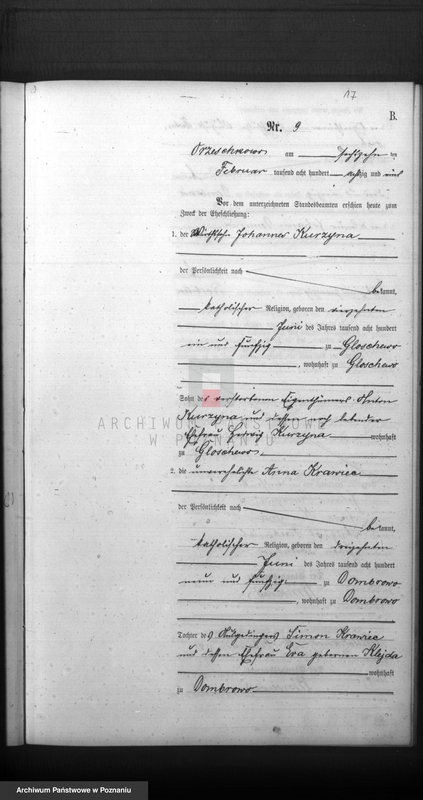 17
B.
Nr. 9
Orzeschkowo am sechzehn ten
Februar tausend acht hundert achtzig und
Vor dem unterzeichneten Standesbeamten erschien heute zum
Zweck der Eheschließung:
1. der Johannes Kurzyna
der Persönlichkeit nach
be kannt,
katholischer Religion, geboren den vierzehnten
Juni des Jahres tausend acht hundert
ein und fünfzig zu Gloschewo
, wohnhaft zu Gloschewo
Sohn des verstorbenen Eigenthümers Anton
Kurzyna und dessen noch lebender
Ehefrau Hedwig Kurzyna wohnhaft
zu Gloschewo
2. die unverehelichte Anna Krawiec
der Persönlichkeit nach
be kannt,
katholischer Religion, geboren den dreizehnten
Juni des Jahres tausend acht hundert
neun und fünfzig zu Dombrowo
, wohnhaft zu Dombrowo
Tochter des Ausgedingers Simon Krawiec
und dessen Ehefrau Eva geborenen Klejda
wohnhaft
zu Dombrowo
ARCHIWUM PAŃSTWOWE
W POZNANIU
Archiwum Państwowe w Poznaniu